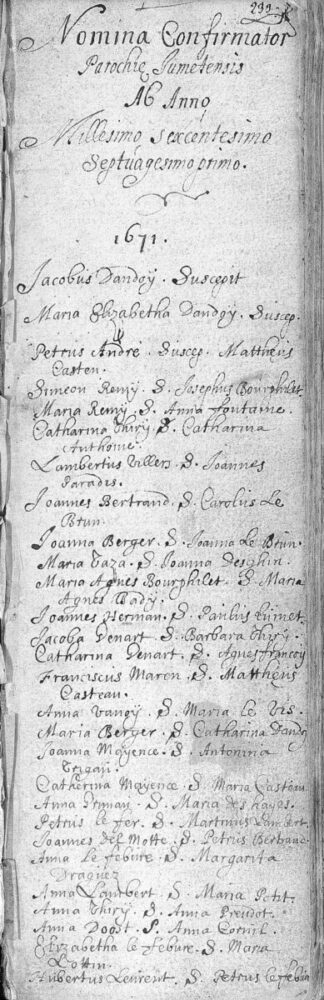 233
Nomina Confirmator
Parochię Jumetensis
Ab Anno
Millesimo sexcentesimo
Septuagesimo primo.
1671.
Jacobus Dandoÿ. Suscepit
Maria Elizabetha Dandoÿ. Suscep.
Petrus André. Suscep. Mattheus
Casten.
Simeon Remÿ. S. Josephus Bourphilet
Maria Remÿ. S. Anna fontaine.
Catharina Thirÿ. S. Catharina
Anthoine.
Lambertus Villers. S. Joannes
Paradis.
Joannes Bertrand. S. Carolus Le
Brun.
Joanna Berger. S. Joanna Le Brun.
Maria Taza. S. Joanna Desghin.
Maria Agnes Bourphilet. S. Maria
Agnes Badÿ.
Joannes Herman. S. Paulus
Jacoba Genart. S. Barbara Thirÿ.
Catharina Genart. S. Agnes francoy
Franciscus Maren. S. Mattheus
Casteau.
Anna Vangÿ. S. Maria le Vis.
Maria Berger. S. Catharina Dandoÿ
Joanna Mayence. S. Antonina
Catherina Mayence. S. Maria Casteau
Anna S. Maria des hayes.
Petrus le fer. S. Martinus Lambert.
Joannes del Motte. S. Petrus
Anna le febure. S. Margarita
Draguez
Anna Lambert. S. Maria Petit.
Anna Thirÿ. S. Anna Preudot.
Anna Doost. S. Anna Cornil.
Elizabetha le febure. S. Maria
Lottin.
Hubertus Leurent. S. Petrus le febure